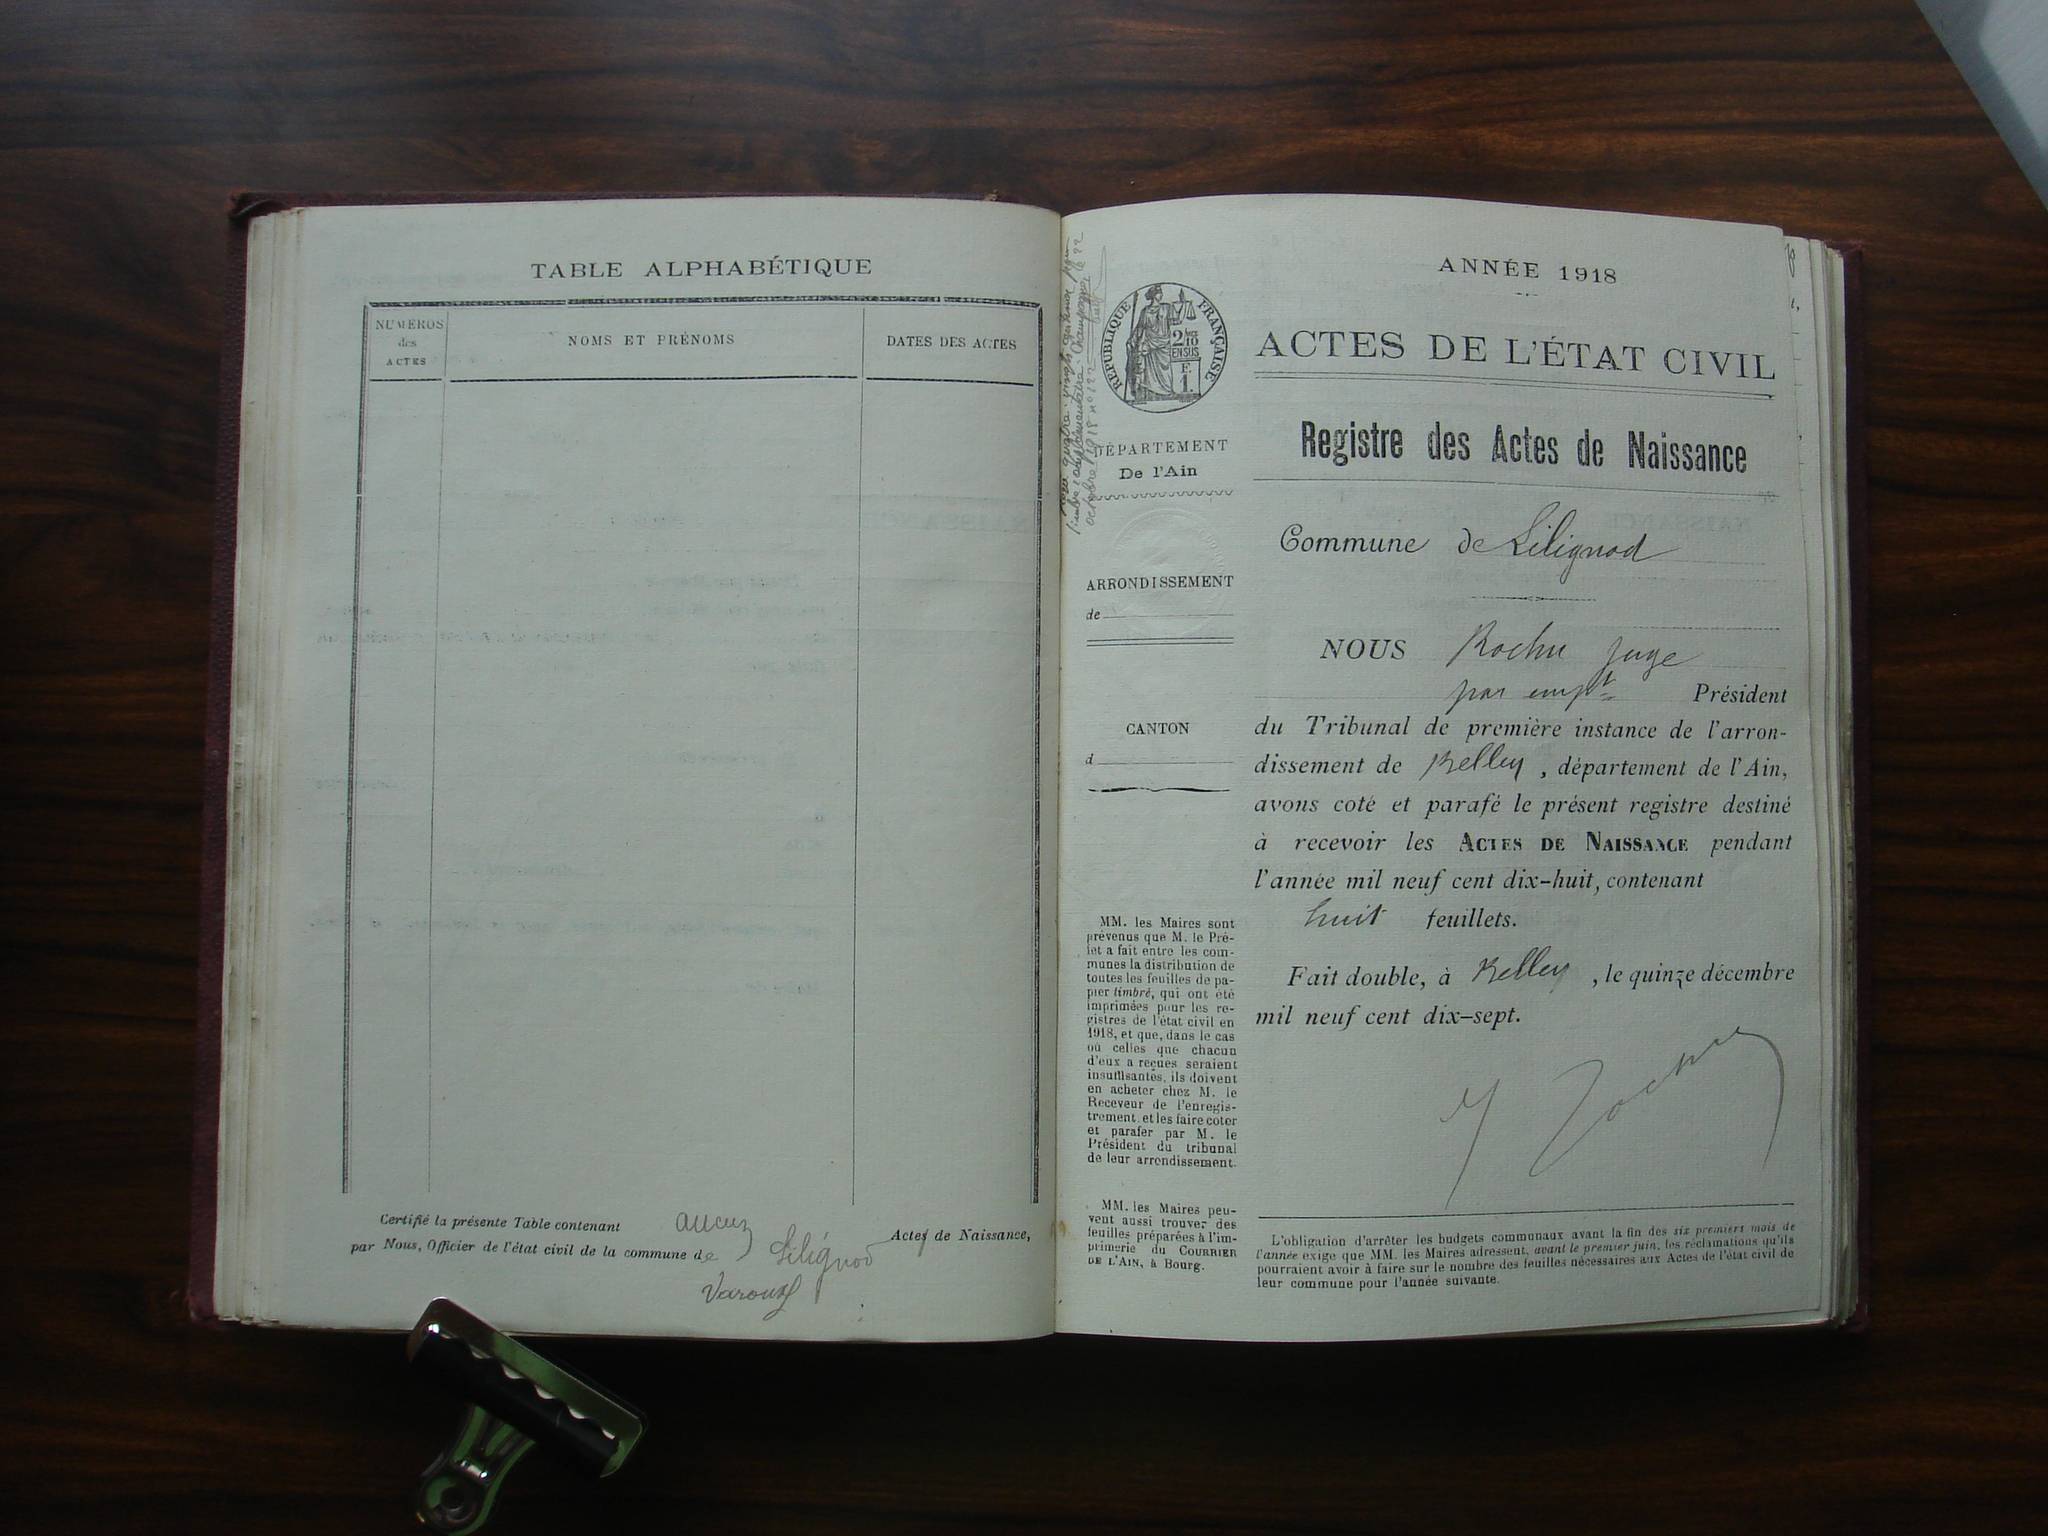 TABLE ALPHABÉTIQUE
NUMÉROS
des
ACTES
NOMS ET PRÉNOMS
DATES DES ACTES
Certifié la présente Table contenant aucun Actes de Naissance,
par Nous, Officier de l'état civil de la commune de Lilignod
ANNÉE 1918
RÉPUBLIQUE FRANÇAISE
2/10
EN SUS
F.
1.
ACTES DE L'ÉTAT CIVIL
Registre des Actes de Naissance
DÉPARTEMENT
De l'Ain
Commune de Lilignod
ARRONDISSEMENT
de
CANTON
d
NOUS Rochu juge
par empt Président
du Tribunal de première instance de l'arron-
dissement de Belley, département de l'Ain,
avons coté et parafé le présent registre destiné
à recevoir les ACTES DE NAISSANCE pendant
l'année mil neuf cent dix-huit, contenant
huit feuillets.
Fait double, à Belley, le quinze décembre
mil neuf cent dix-sept.
MM. les Maires sont
prévenus que M. le Pré-
fet a fait entre les com-
munes la distribution de
toutes les feuilles de pa-
pier timbré, qui ont été
imprimées pour les re-
gistres de l'état civil en
1918, et que, dans le cas
où celles que chacun
d'eux a reçues seraient
insuffisantes, ils doivent
en acheter chez M. le
Receveur de l'enregis-
trement et les faire coter
et parafer par M. le
Président du tribunal
de leur arrondissement.
MM. les Maires peu-
vent aussi trouver des
feuilles préparées à l'im-
primerie du COURRIER
DE L'AIN, à Bourg.
L'obligation d'arrêter les budgets communaux avant la fin des six premiers mois de
l'année exige que MM. les Maires adressent, avant le premier juin, les réclamations qu'ils
pourraient avoir à faire sur le nombre des feuilles nécessaires aux Actes de l'état civil de
leur commune pour l'année suivante.